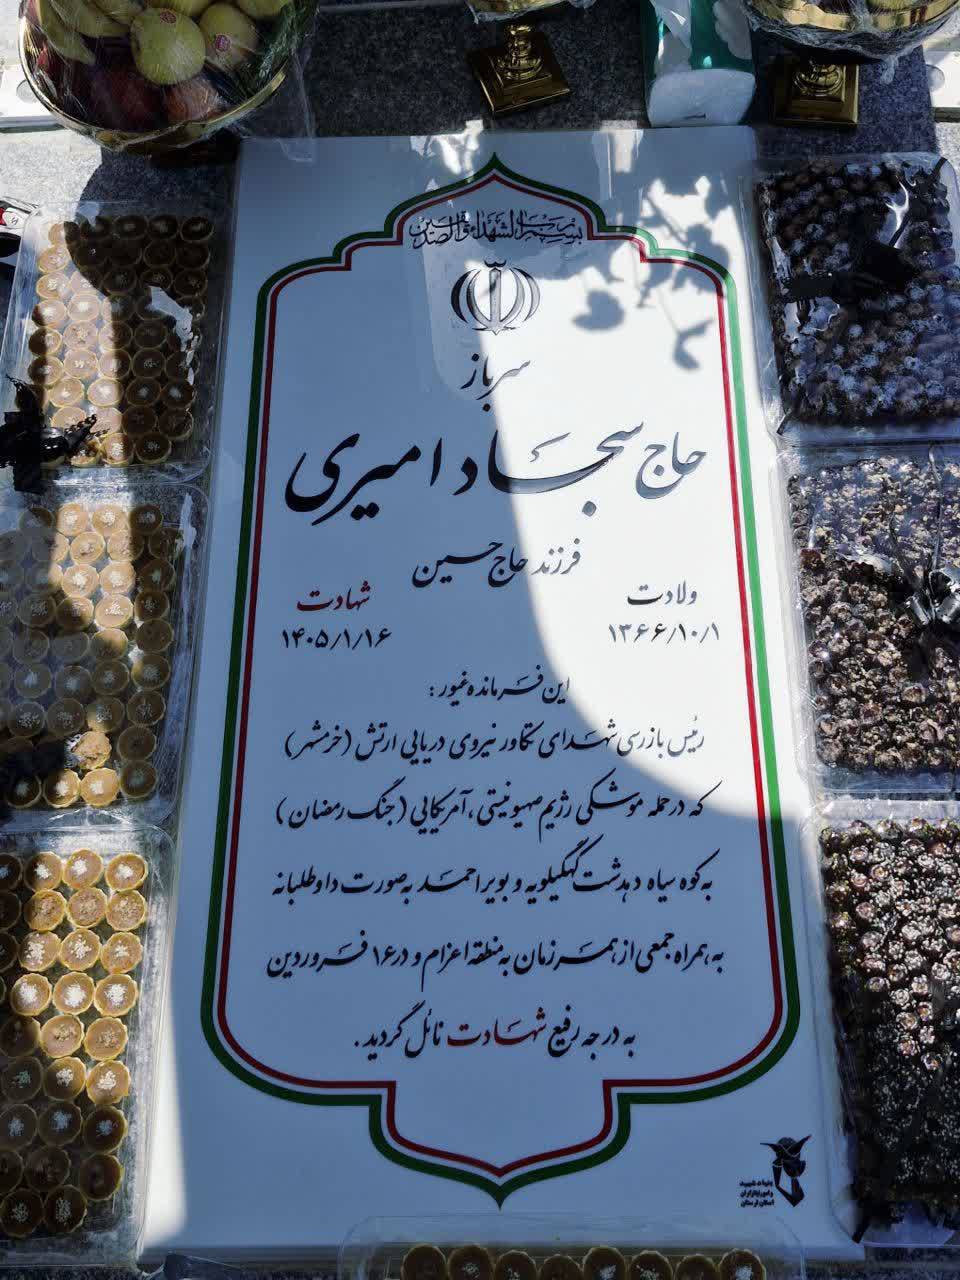 بسم رب الشهداء و الصدیقین
سرباز
حاج سجاد امیری
فرزند حاج حسین
ولادت
۱۳۶۶/۱۰/۱
شهادت
۱۴۰۵/۱/۱۶
این فرمانده غیور :
رئیس بازرسی شهدای تکاور نیروی دریایی ارتش (خرمشهر)
که در حمله موشکی رژیم صهیونیستی، آمریکایی (جنگ رمضان)
به کوه سیاه دهدشت کهگیلویه و بویراحمد به صورت داوطلبانه
به همراه جمعی از همرزمان به منطقه اعزام و در ۱۶ فروردین
به درجه رفیع شهادت نائل گردید.
بنیاد شهید
و امور ایثارگران
استان لرستان